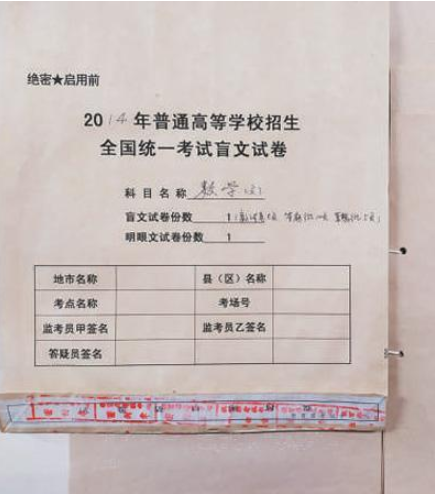 绝密★启用前
2014年普通高等学校招生
全国统一考试盲文试卷
科目名称 数学(文)
盲文试卷份数 1
明眼文试卷份数 1
地市名称 县（区）名称
考点名称 考场号
监考员甲签名 监考员乙签名
答疑员签名